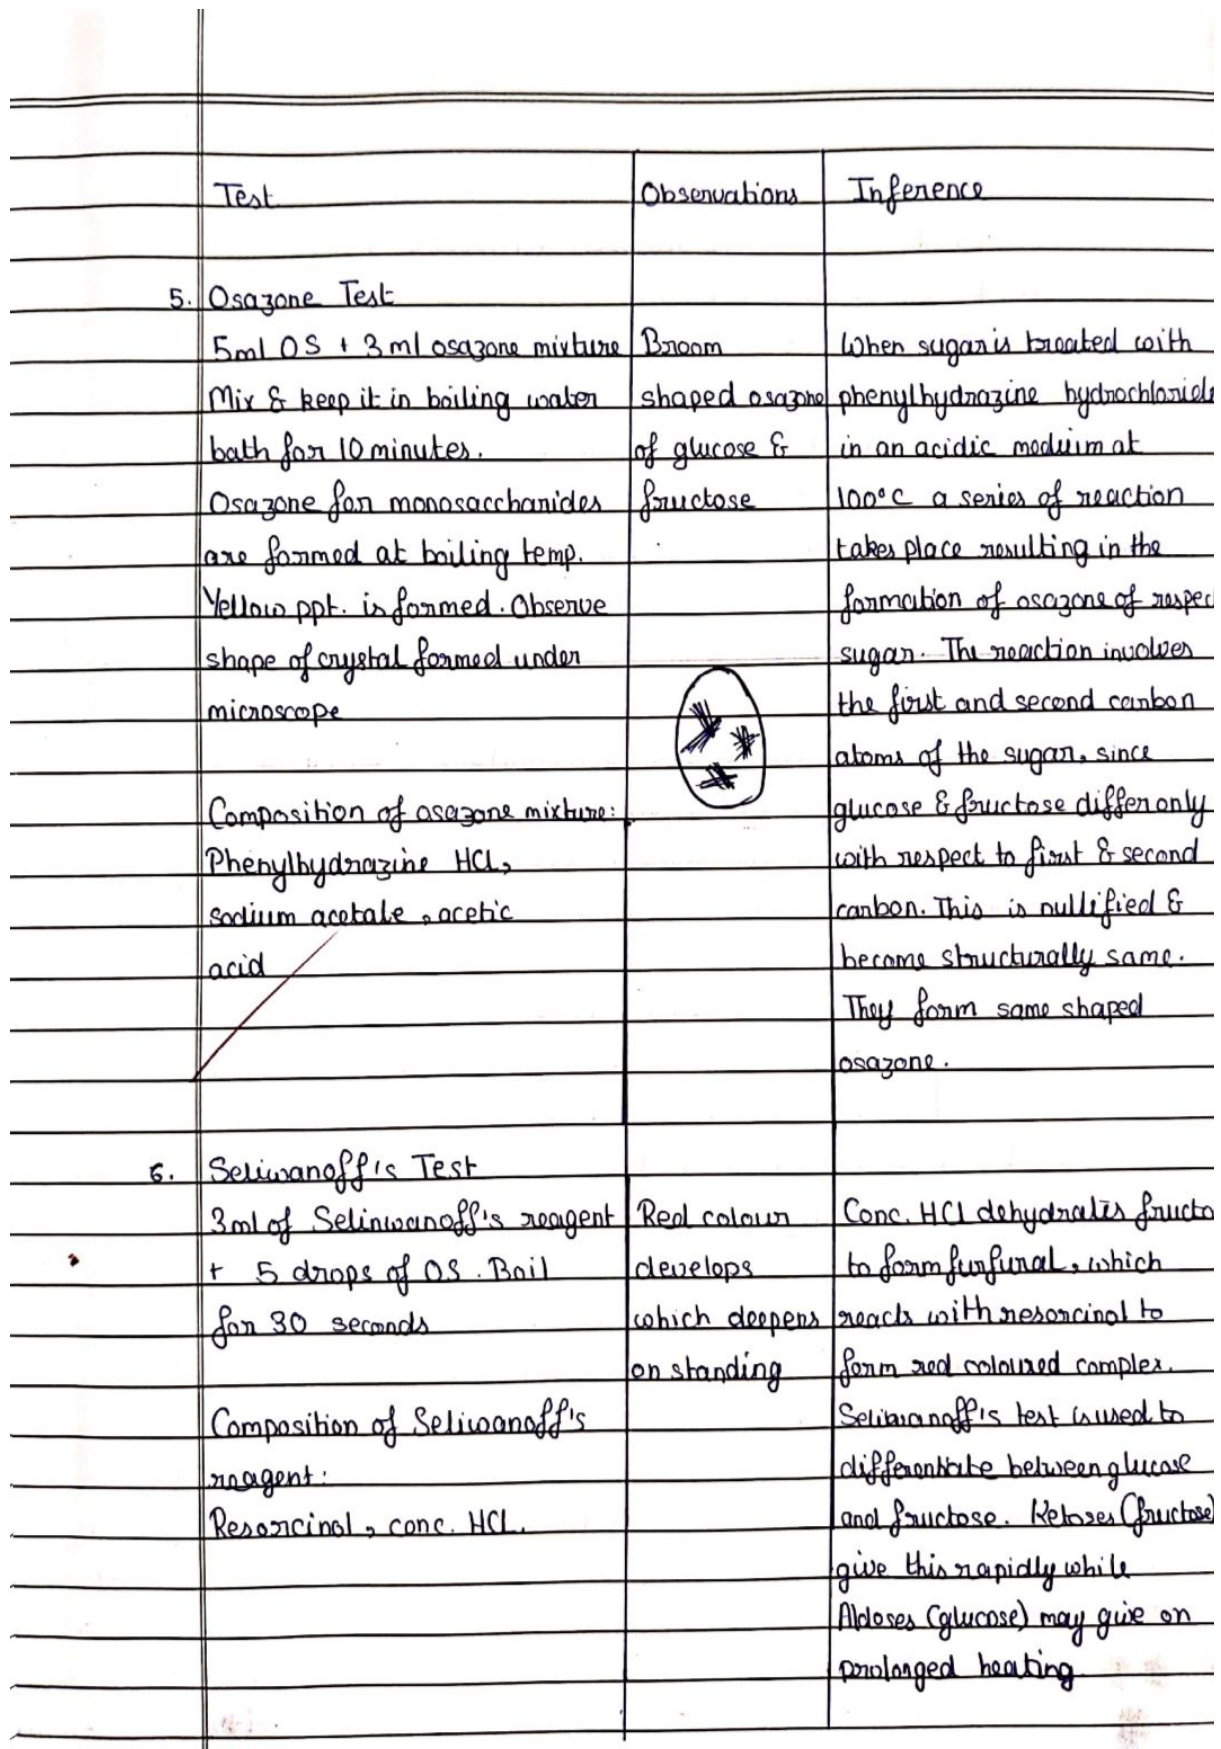 Test
Observations
Inference
5. Osazone Test
5ml OS + 3ml osazone mixture
Mix & keep it in boiling water
bath for 10 minutes.
Osazone for monosaccharides
are formed at boiling temp.
Yellow ppt. is formed. Observe
shape of crystal formed under
microscope
Composition of osazone mixture:
Phenylhydrazine HCl,
sodium acetate, acetic
acid
Broom
shaped osazone
of glucose &
fructose
When sugar is treated with
phenylhydrazine hydrochloride
in an acidic meduim at
100°C a series of reaction
takes place resulting in the
formation of osazone of respec
sugar. The reaction involves
the first and second carbon
atoms of the sugar, since
glucose & fructose differ only
with respect to first & second
carbon. This is nullified &
become structurally same.
They form same shaped
osazone.
6. Seliwanoff's Test
3ml of Selinwanoff's reagent
+ 5 drops of OS. Boil
for 30 seconds
Composition of Seliwanoff's
reagent:
Resorcinol, conc. HCl.
Red colour
develops
which deepens
on standing
Conc. HCl dehydratis fructo
to form furfural, which
reacts with resorcinol to
form red coloured complex.
Seliwanoff's test is used to
differentiate between glucose
and fructose. Ketoses (fructose)
give this rapidly while
Aldoses (glucose) may give on
prolonged heating